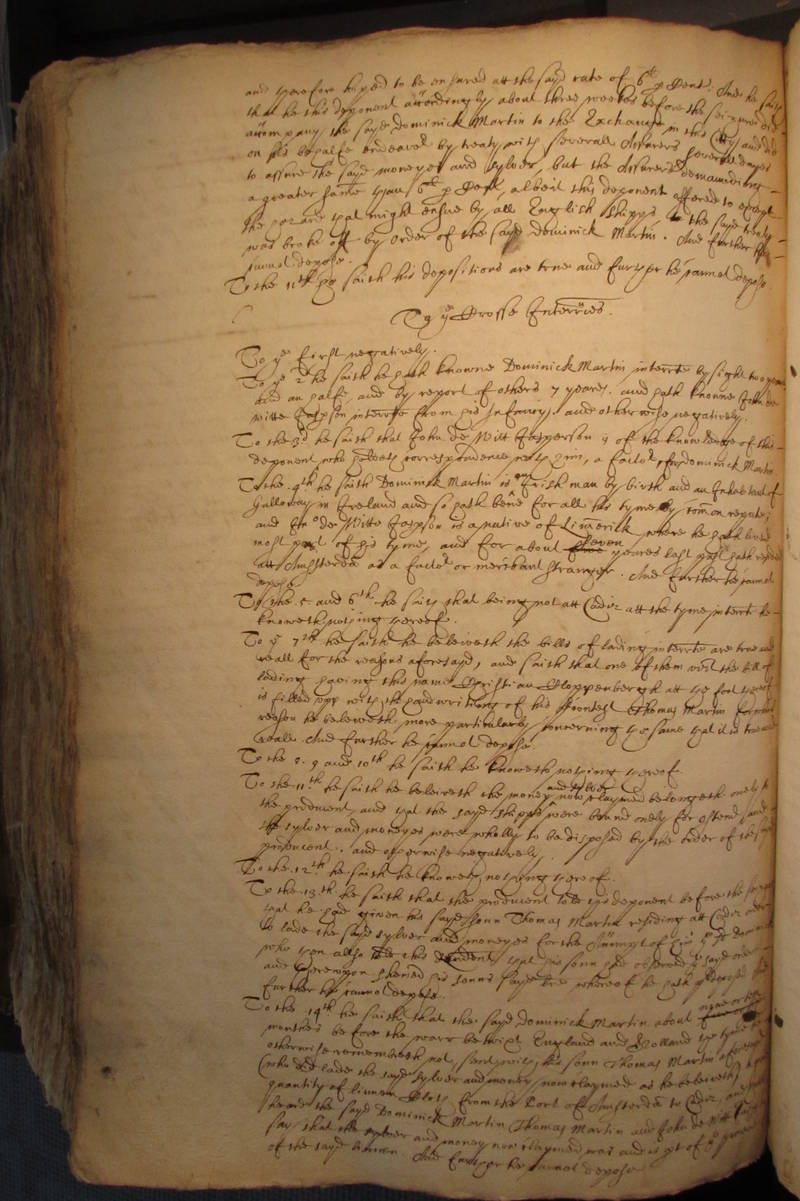 and therefore hoped to be ensured att the sayd rate of 6li p Cent. And he saith
that he this deponent accordingly about three weekes before the seizure did
accompany the sayd Dominick Martin to the Exchange in this City and did
on his behalfe endeavor by treaty with severall Assurers severall dayes
to assure the sayd moneyes and sylver, but the Assurers demaunding
a greater than 6li p Cent, albeit this deponent offered to except
the hazard that might ensue by all English shipps the sayd treaty
was broke off by order of the sayd Dominick Martin. And further he
cannot depose.
To the 11th hee saith his depositions are true and further he cannot depose.
To ye Crosse Interries.
To ye first negatively.
To ye 2 he saith he hath knowne Dominick Martin interrte by sight two yeares
and an halfe, and by report of others 7 yeares. and hath knowne John de
Witte Jasperson interrte from his infancy. and otherwise negatively.
To the 3d he saith that John de Witt Jasperson is of the knowledge of this
deponent who holdeth correspondence with him, a factor for Dominick Martin
To the 4th he saith Dominick Martin is an Irish man by birth and an Inhabitant of
Galloway in Ireland and so hath bene for all his tyme by common repute;
and Jno de Witte Jasperson is a native of Limerick where he hath lived
most part of his tyme, and for about eleven yeares last past hath resided
att Amsterdam as a factor or merchant stranger. And further he cannot
depose.
To the 5 and 6th he saith that being not att Cadiz att the tyme interrte he
knoweth nothing thereof.
To ye 7th he saith he beleiveth the bills of lading interrte are true and
reall for the reasons aforesayd, and saith that one of them vizt the bill of
lading having this name Christian Cloppenbergh att the foot thereof
is filled upp with the handwriting of his Thomas Martin
reason he beleiveth more particularly concerning the same that it is true and
reall. And further he cannot depose.
To the 8. 9 and 10th he saith he knoweth nothing thereof.
To the 11th he saith he beleiveth the money and sylver now claymed belongeth onely to
the producent, and that the sayd shipps were bound onely for Ostend, and
the sylver and moneyes were wholly to be disposed by the order of the sayd
producent. and otherwise negatively.
To the 12th he saith he knoweth nothing thereof.
To the 13th he saith that the producent told this deponent before the
that he had given his sayd sonn Thomas Martin residing att Cadiz order
to lade the sayd sylver and moneyes for the Account of him ye sd Dominick
who then also told this deponent that his sonn had observed ye sayd order
and thereupon shewed his sonns sayd tre whereof he hath
further he cannot depose.
To the 14th he saith that the sayd Dominick Martin about
monthes before the warr betwixt England and Holland the tyme
otherwise remembreth not, send with his sonn Thomas Martin aforesayd
(who did lade the sayd sylver and money now claymed as he beleiveth)
quantity of linnen Cloth from the Port of Amsterdam to Cadiz, and
heard the sayd Dominick Martin Thomas Martin and John de Witt
say that the sylver and money now claymed was and is pt of ye
of the sayd linnen. And further he cannot depose